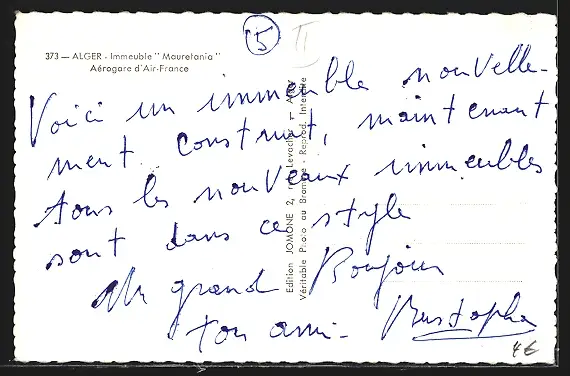 5
II
373 — ALGER - Immeuble "Mauretania"
Aérogare d'Air-France
Voici un immeuble nouvelle-
ment construit, maintenant
tous les nouveaux immeubles
sont dans ce style
Un grand Bonjour
ton ami -
Edition JOMONE 2, Levacher — Alger
Véritable Photo au Bromure - Reprod. Interdite
4€